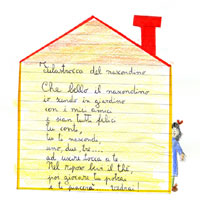 Filastrocca del nascondino
Che bello il nascondino
io gioco in giardino
con i miei amici
e siam tutti felici
tu conti,
tu ti nascondi,
uno, due, tre....
ad uscire tocca a te.
Nel riposo bevi il thè,
poi giocare tu potrai
e ti piacerà vedrai